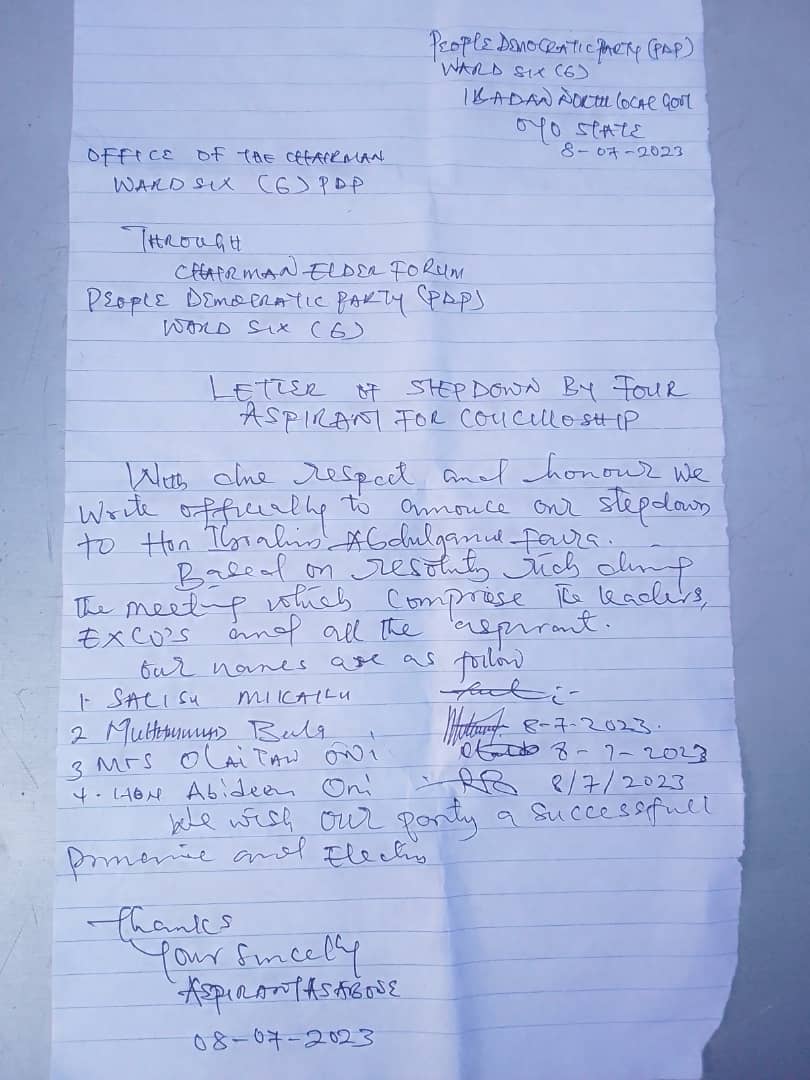 PEOPLE DEMOCRATIC PARTY (PDP)
WARD SIX (6)
IBADAN NORTH LOCAL GOVT
OYO STATE
8-07-2023
OFFICE OF THE CHAIRMAN
WARD SIX (6) PDP
THROUGH
CHAIRMAN ELDER FORUM
PEOPLE DEMOCRATIC PARTY (PDP)
WARD SIX (6)
LETTER OF STEPDOWN BY FOUR
ASPIRANT FOR COUCILLOSHIP
With due respect and honour we
Write officially to annouce our stepdown
to Hon Ibrahim
Based on rich
the meeting which Comprise the leaders,
EXCO'S and all the aspirant.
our names are as follow
1. SALISU MIKAILU :-
2 8-7-2023.
3 Mrs OLAITAN ONI 8-7-2023
4. HON Abideen Oni 8/7/2023
We wish our party a successfull
and
Thanks
Your
ASPIRANT AS ABOVE
08-07-2023